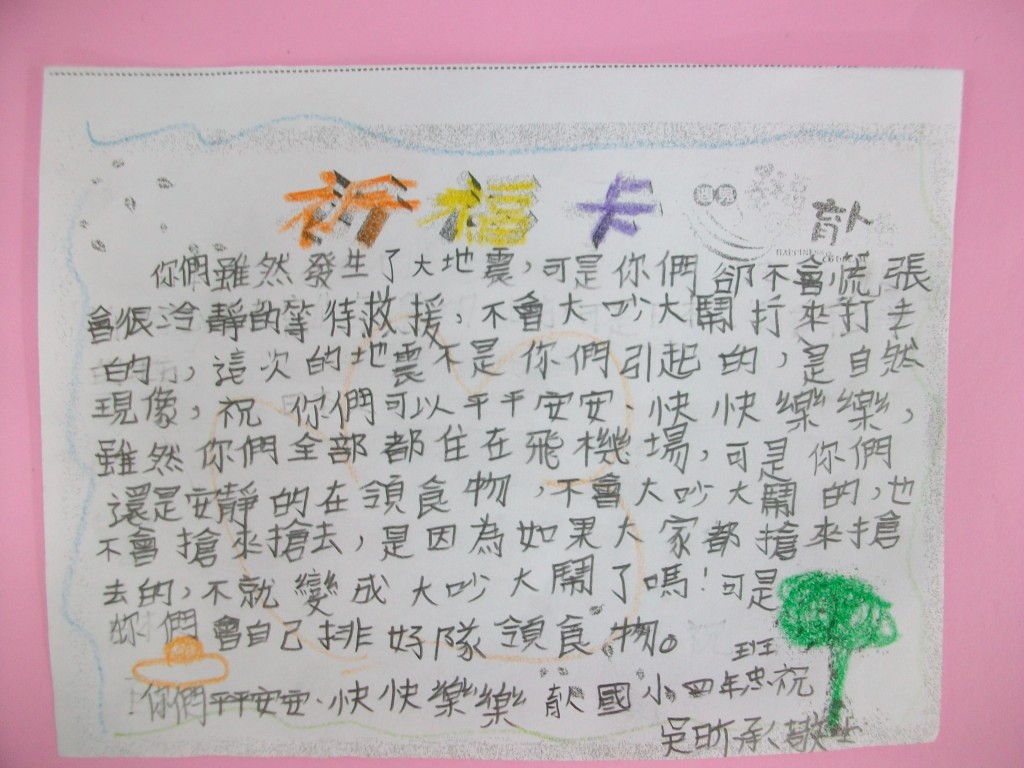 祈福卡
HAPPINESS
你們雖然發生了大地震,可是你們卻不會慌張
會很冷靜的等待救援,不會大吵大鬧打來打去
的,這次的地震不是你們引起的,是自然
現像,祝你們可以平平安安、快快樂樂,
雖然你們全部都住在飛機場,可是你們
還是安靜的在領食物,不會大吵大鬧的,也
不會搶來搶去,是因為如果大家都搶來搶
去的,不就變成大吵大鬧了嗎!可是
你們會自己排好隊領食物。
你們平平安安、快快樂樂 國小四年忠班祝
吳昕承敬上